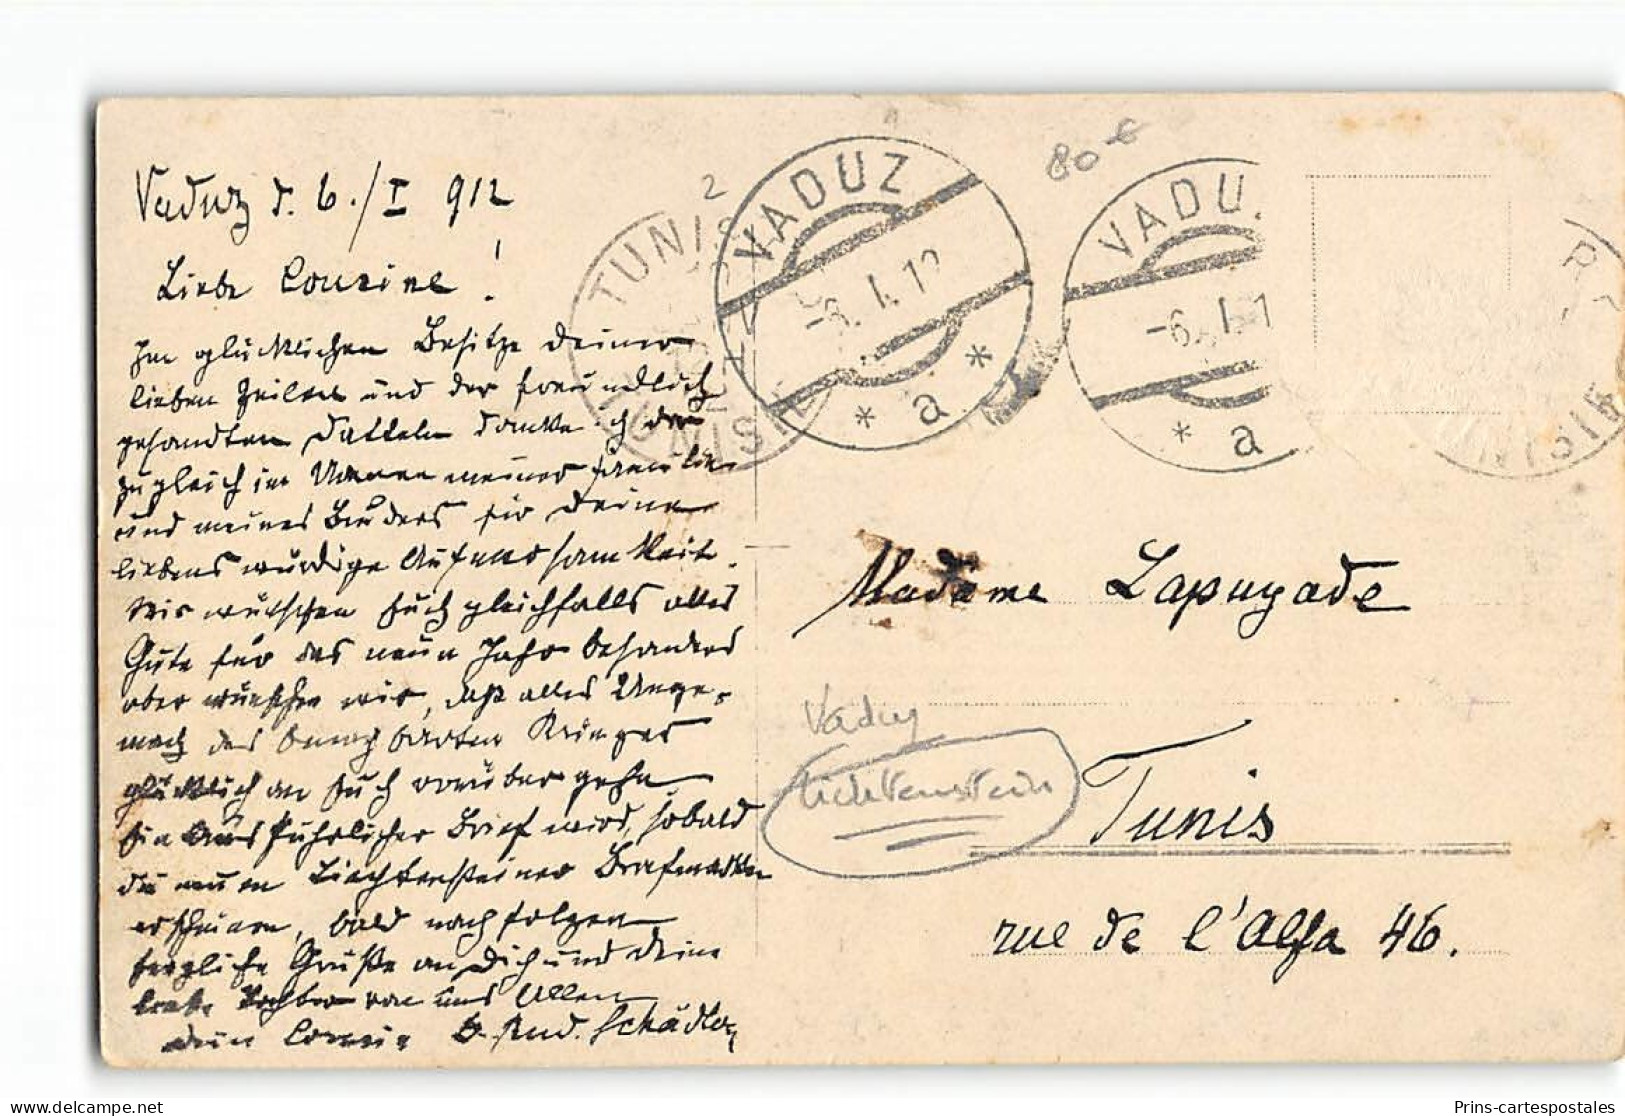 Vaduz d. 6./I 912
Liebe Cousine!
Im glücklichen Besitze Deiner
lieben Zeilen und der freundlich
gesandten Datteln danke ich Dir
zugleich im Namen meiner Familie
und meines Bruders für Deine
liebenswürdige Aufmerksamkeit.
Wir wünschen Euch gleichfalls alles
Gute für das neue Jahr besonders
aber wünschen wir, daß alles Unge-
mach des Krieges
glücklich an Euch vorüber gehe
Ein ausführlicher Brief wird, sobald
die neuen Liechtensteiner Briefmarken
erscheinen, bald nachfolgen
herzliche Grüße an Dich und Deine
liebe Tochter von uns Allen
Dein Cousin Rud. Schädler
2
TUNIS
TUNISIE
VADUZ
-6.I.12
* a *
80 €
VADU.
-6.I.1
* a
R
TUNISIE
Madame Lapuyade
Vaduz
Lichtenstein
Tunis
rue de l'Alfa 46.
www.delcampe.net
Prins-cartespostales